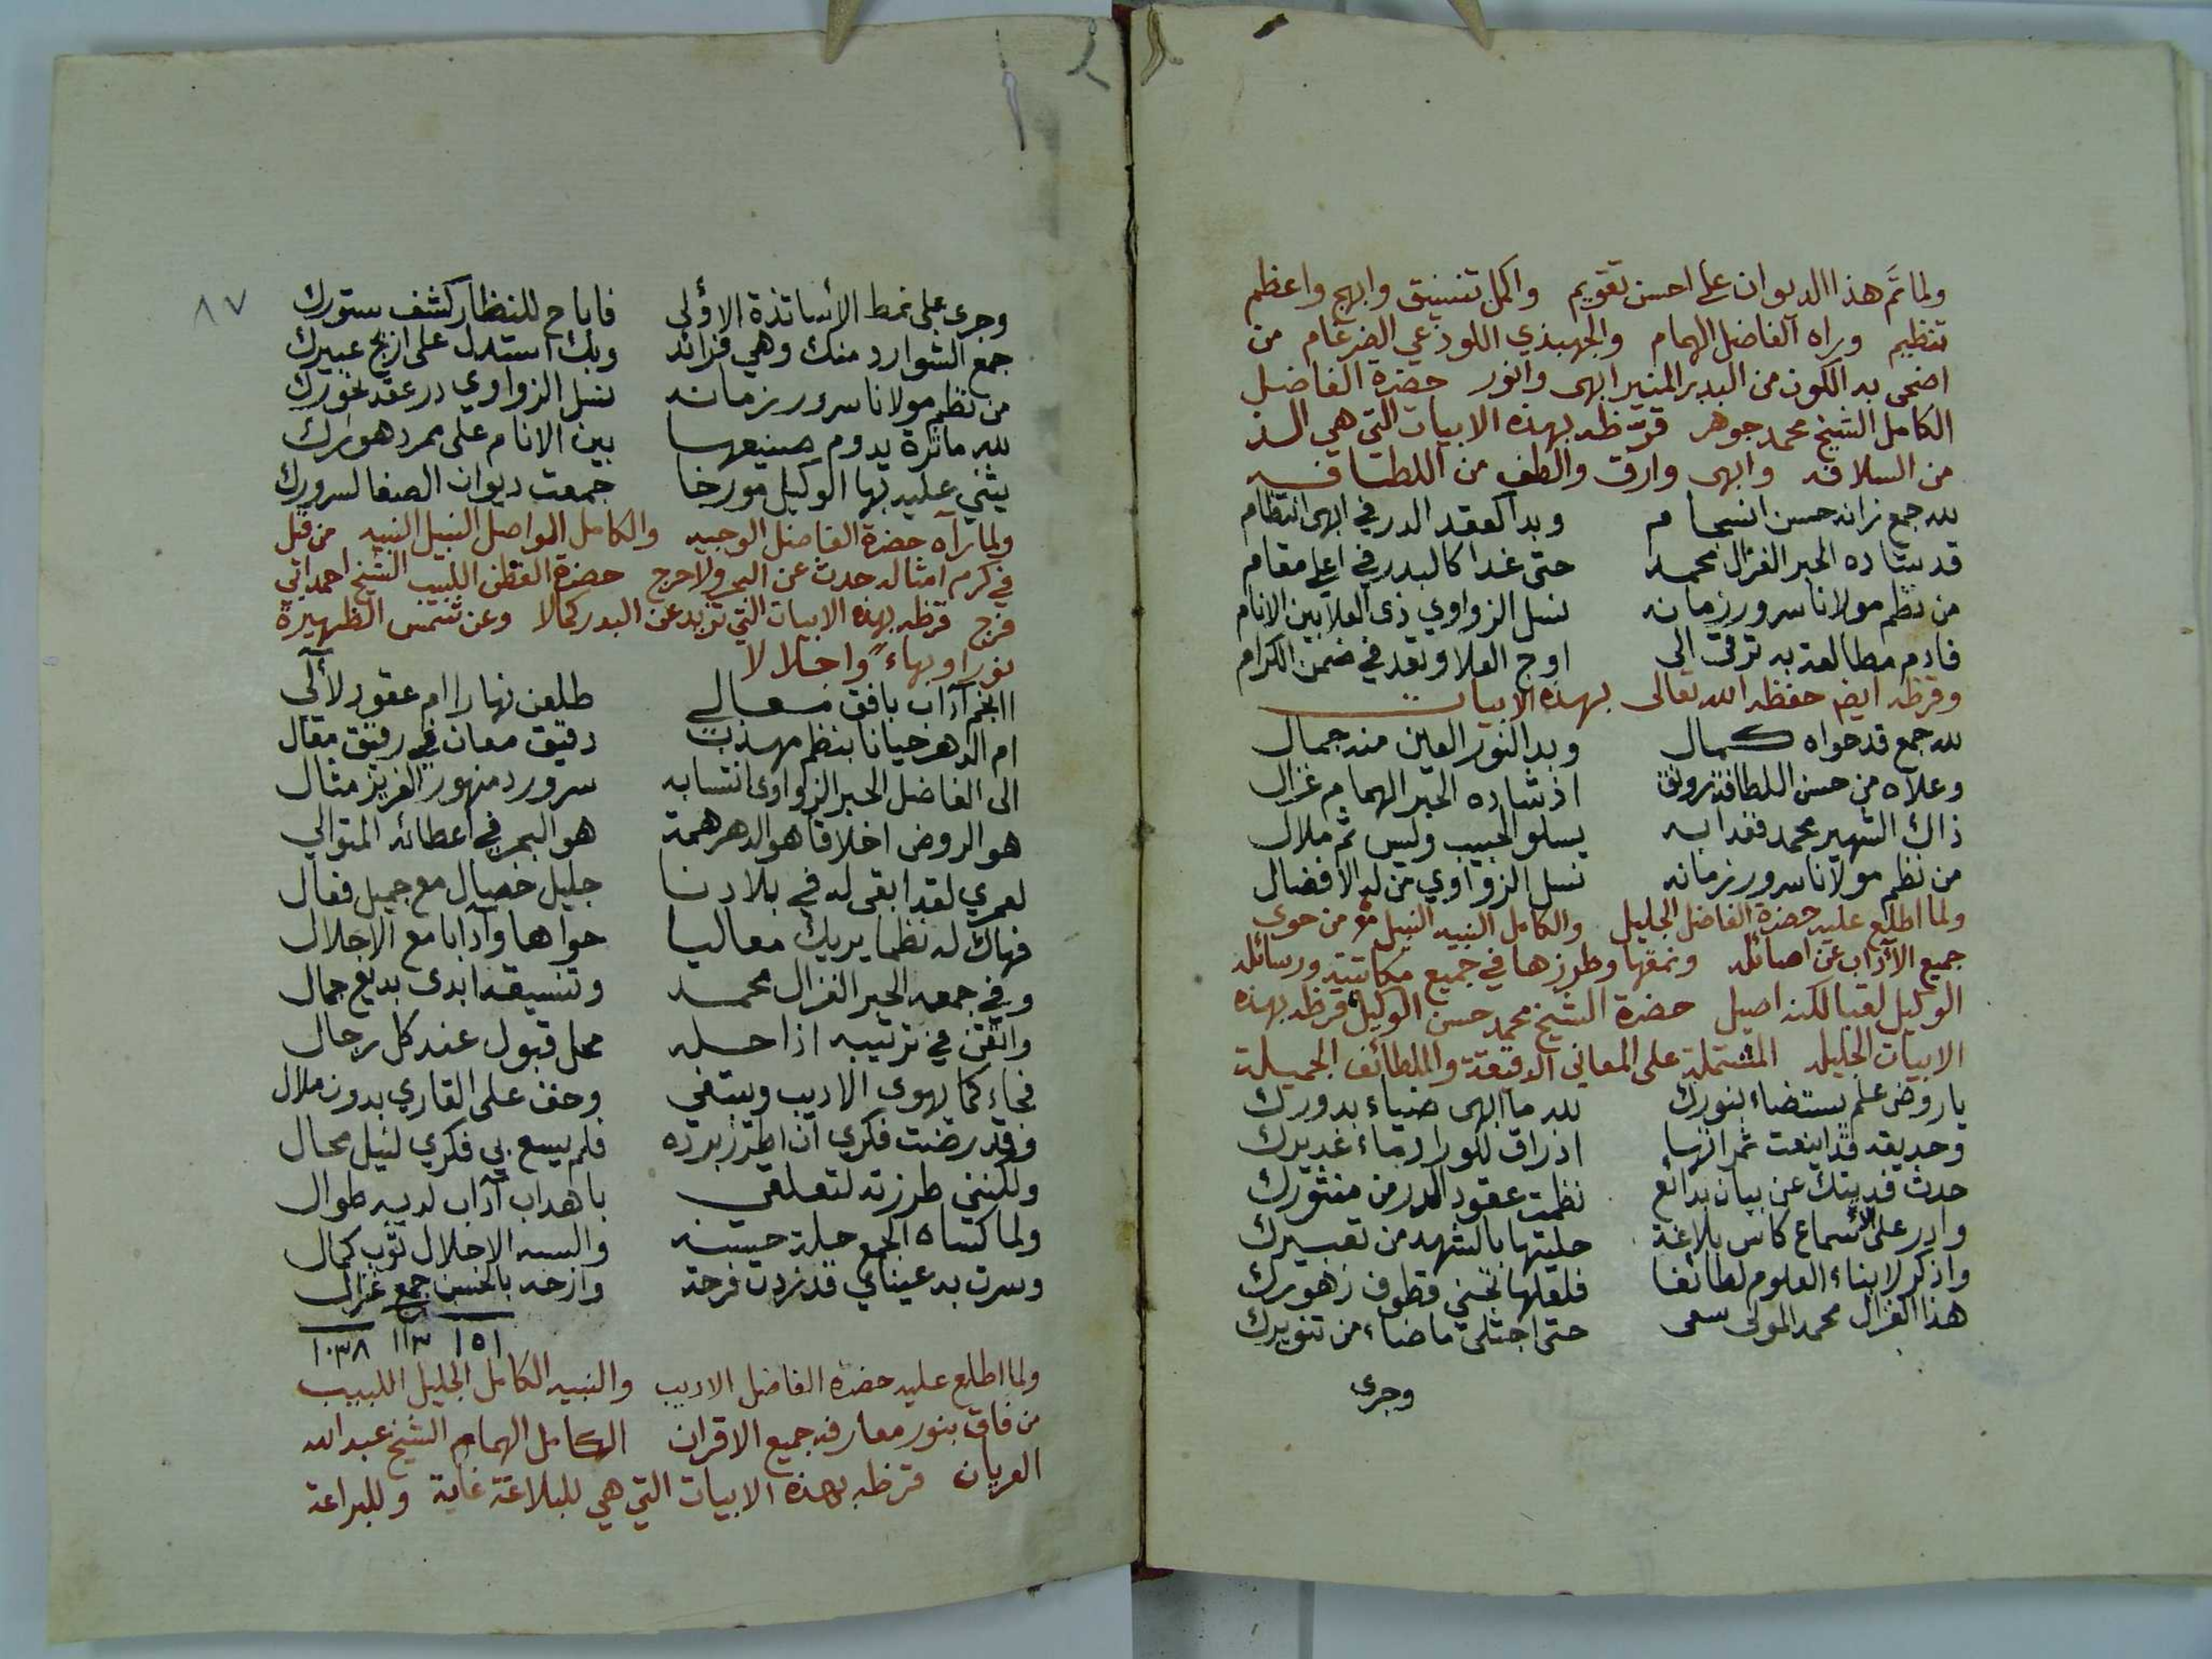 ولما تم هذا الديوان على احسن تقويم واكمل تنسيق وابهج واعظم
تنظيم وراه الفاضل الهمام والجهبذي اللوذعي الضرغام من
اضحى به الكون من البدر المنير ابهى وانور حضرة الفاضل
الكامل الشيخ محمد جوهر قرّظه بهذه الابيات التي هي الذ
من السلافه وابهى وارق والطف من اللطافه
لله جمع زانه حسن انسجام وبدا كعقد الدر في ابهى انتظام
قد شاده الحبر الغزال محمد حتى غدا كالبدر في اعلى مقام
من نظم مولانا سرور زمانه نسل الزواوي ذى العلا بين الانام
فادم مطالعة به ترقى الى اوج العلا وتعد في ضمن الكرام
وقرظه ايضا حفظه الله تعالى بهذه الابيات
لله جمع قد حواه كمال وبدا لنور العين منه جمال
وعلاه من حسن اللطافة رونق اذ شاده الحبر الهمام غزال
ذاك الشهير محمد فغدا به يسلو الحبيب وليس ثم ملال
من نظم مولانا سرور زمانه نسل الزواوي من له الافضال
ولما اطلع عليه حضرة الفاضل الجليل والكامل النبيه النبيل من حوى
جميع الآداب عن اصائله ونمقها وطرزها في جميع مكاتبته ورسائله
الوكيل لقبا لكنه اصيل حضرة الشيخ محمد حسن الوكيل قرظه بهذه
الابيات الجليله المشتملة على المعاني الدقيقة واللطائف الجميلة
يا روض علم يستضاء بنورك لله ما ابهى ضياء بدورك
وحديقه قد اينعت ثمراتها اذ راق للوراد ماء غديرك
حدث فديتك عن بيان بدائع نظمت عقود الدر من منثورك
وادر على الاسماع كاس بلاغة حليتها بالشهد من تعبيرك
واذكر لابناء العلوم لطائفا فلعلها تجني قطوف زهورك
هذا الغزال محمد المولى سعى حتى اجتلى ما ضاء من تنويرك
وجرى
٨٧
وجرى على نمط الأساتذة الاولى فاباح للنظار كشف ستورك
جمع الشوارد منك وهي فرائد وبك استدل على اريج عبيرك
من نظم مولانا سرور زمانه نسل الزواوي در عقد نحورك
لله ماثرة يدوم صنيعها بين الانام على ممر دهورك
يثني عليه بها الوكيل مورخا جمعت ديوان الصفا لسرورك
ولما رآه حضرة الفاضل الوجيه والكامل الواصل النبيل النبيه من قيل
في كرم امثاله حدث عن البحر ولا حرج حضرة الفطن اللبيب الشيخ احمد ابي
فرج قرظه بهذه الابيات التي تزيد عن البدر كمالا وعن شمس الظهيرة
نورا وبهاء واجلالا
اانجم آداب بافق معالي طلعن نهارا ام عقود لآلي
ام الدهر حيانا بنظم مهذب دقيق معان في رقيق مقال
الى الفاضل الحبر الزواوى انتسابه سرور دمنهور العزيز مثال
هو الروض اخلاقا هو الدهر همة هو البحر في اعطائه المتوالي
لعمري لقد ابقى له في بلادنا جليل خصال مع جميل فعال
فهاك له نظما يريك معاليا حواها وآدابا مع الاجلال
وفي جمعه الحبر الغزال محمد وتنسيقه ابدى بديع جمال
واتقن في ترتيبه اذ احله محل قبول عند كل رجال
فجاء كما يهوى الاديب ويبتغي وخف على القاري بدون ملال
وقد رضت فكري ان اطرز برده فلم يسع بي فكري لنيل محال
ولكنني طرزته لتعلقي باهداب آداب لديه طوال
ولما كساه الجمع حلة حسنه والبسه الاجلال ثوب كمال
وسرت به عيناي قد زدت فرحة وارخه بالحسن جمع غزال
١٥١ ١١٣ ١٠٣٨
ولما اطلع عليه حضرة الفاضل الاديب والنبيه الكامل الجليل اللبيب
من فاق بنور معارفه جميع الاقران الكامل الهمام الشيخ عبد الله
العريان قرظه بهذه الابيات التي هي للبلاغة غاية وللبراعة